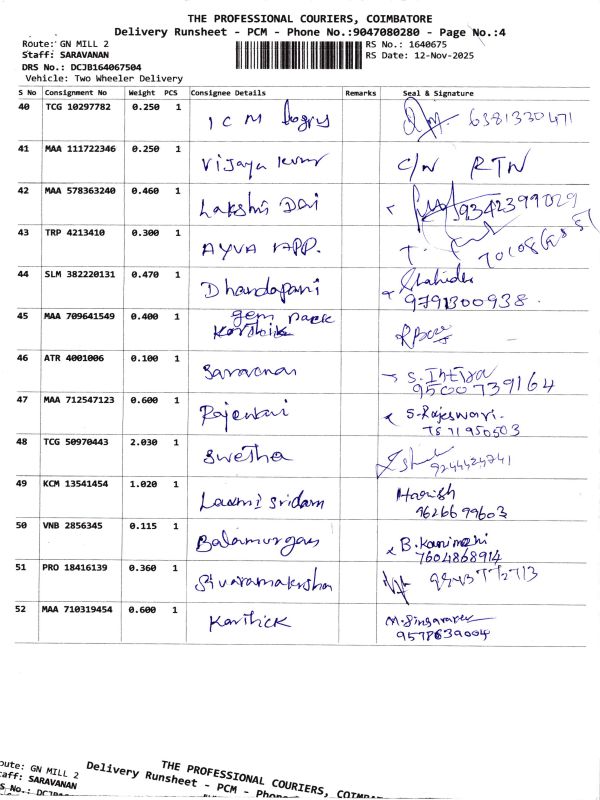 THE PROFESSIONAL COURIERS, COIMBATORE
Delivery Runsheet - PCM - Phone No.:9047080280 - Page No.:4
Route: GN MILL 2
RS No.: 1640675
Staff: SARAVANAN
RS Date: 12-Nov-2025
DRS No.: DCJB164067504
Vehicle: Two Wheeler Delivery
S No Consignment No Weight PCS Consignee Details Remarks Seal & Signature
40 TCG 10297782 0.250 1 ICM 6381330471
41 MAA 111722346 0.250 1 Vijaya kumar C/N RTN
42 MAA 578363240 0.460 1 Lakshmi Dai 9342399029
43 TRP 4213410 0.300 1 AYVA APP.
44 SLM 382220131 0.470 1 Dhandapani Shahida
9791300938.
45 MAA 709641549 0.400 1 gem park
Karthik
46 ATR 4001006 0.100 1 Saravanan S. Indira
9500739164
47 MAA 712547123 0.600 1 Rajeswari S.Rajeswari.
7871950503
48 TCG 50970443 2.030 1 Swetha
49 KCM 13541454 1.020 1 Laxmi Sridam Harish
9626699603
50 VNB 2856345 0.115 1 Balamurgan B.Kanimozhi
7604868914
51 PRO 18416139 0.360 1 Sivaramakrsha
52 MAA 710319454 0.600 1 Karthick M.Singaravel
9578639004
Route: GN MILL 2
THE PROFESSIONAL COURIERS,
Staff: SARAVANAN
Delivery Runsheet - PCM -